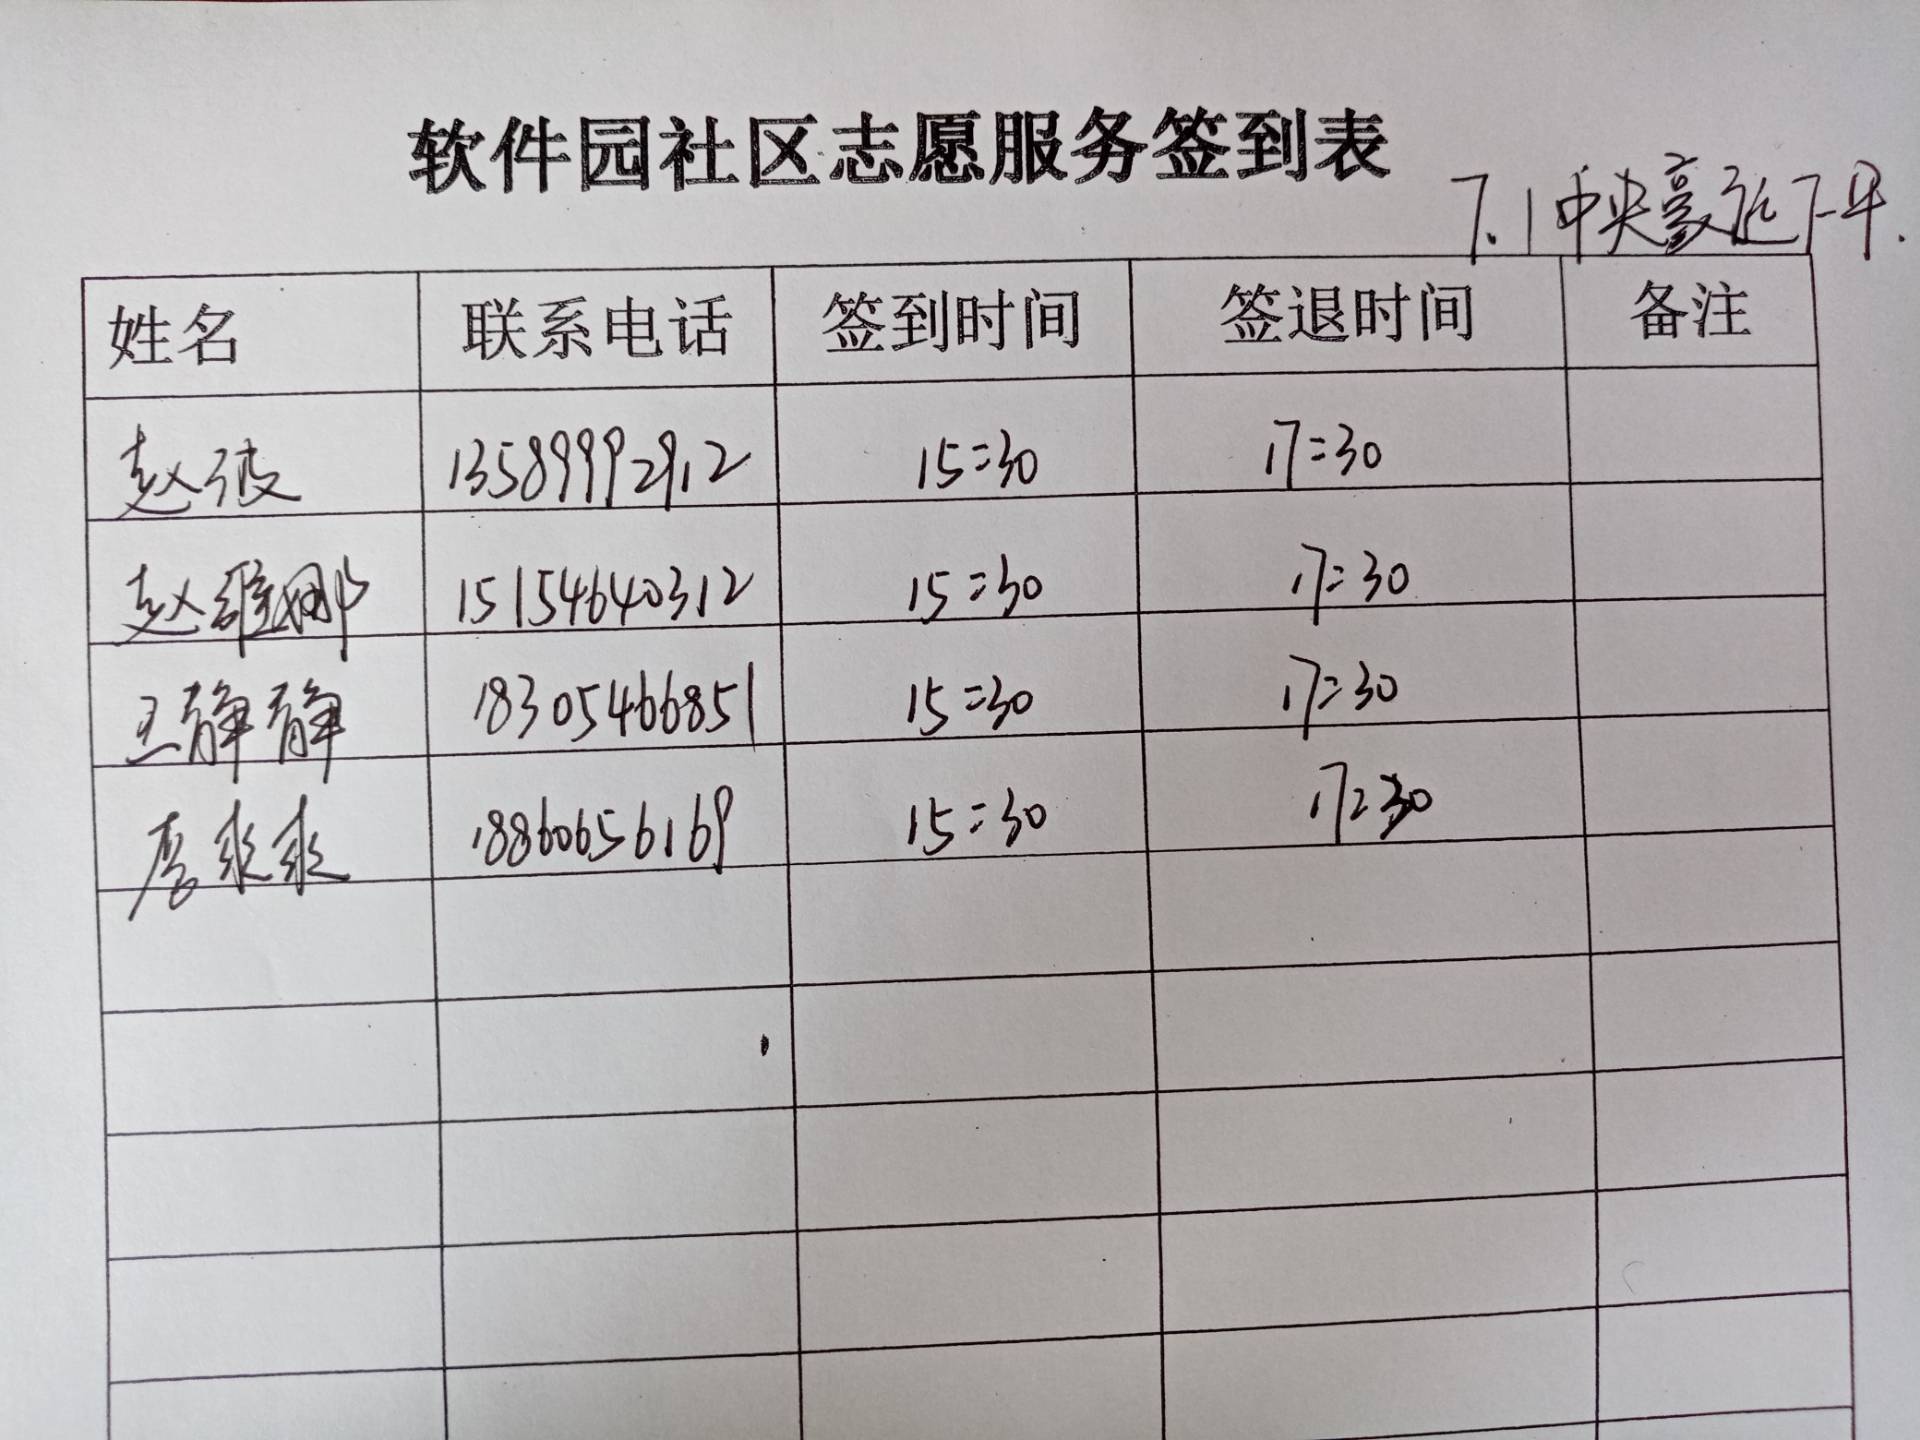 软件园社区志愿服务签到表
7.1中央豪庭下午.
姓名 联系电话 签到时间 签退时间 备注
赵波 13589992912 15:30 17:30
赵雅娜 15154640312 15:30 17:30
王静静 18305466851 15:30 17:30
李 18860656169 15:30 17:30